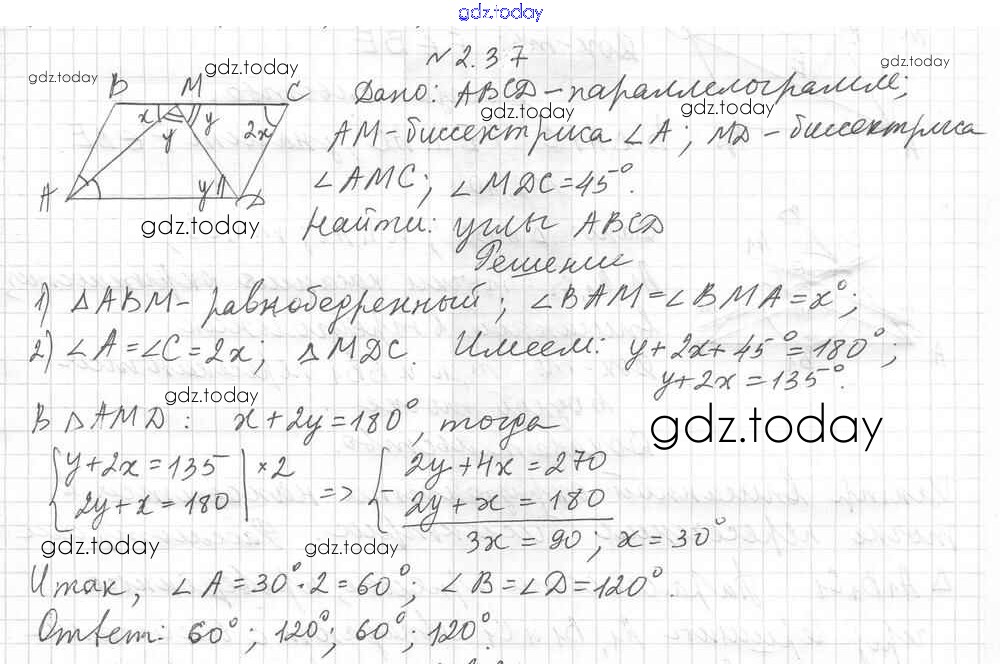 gdz.today
№ 2.37
gdz.today
gdz.today
gdz.today
B M C
Дано: ABCD - параллелограмм;
gdz.today
gdz.today
x y y 2x
AM - биссектриса ∠A; MD - биссектриса
A y D
∠AMC; ∠MDC = 45°.
gdz.today
Найти: углы ABCD
Решение
1) △ABM - равнобедренный; ∠BAM = ∠BMA = x°;
2) ∠A = ∠C = 2x; △MDC. Имеем: y + 2x + 45° = 180°;
y + 2x = 135°.
gdz.today
В △AMD: x + 2y = 180°, тогда
gdz.today
{ y + 2x = 135 | ×2 { 2y + 4x = 270
2y + x = 180 => 2y + x = 180
3x = 90; x = 30°
gdz.today
gdz.today
Итак, ∠A = 30° · 2 = 60°; ∠B = ∠D = 120°.
Ответ: 60°; 120°; 60°; 120°.